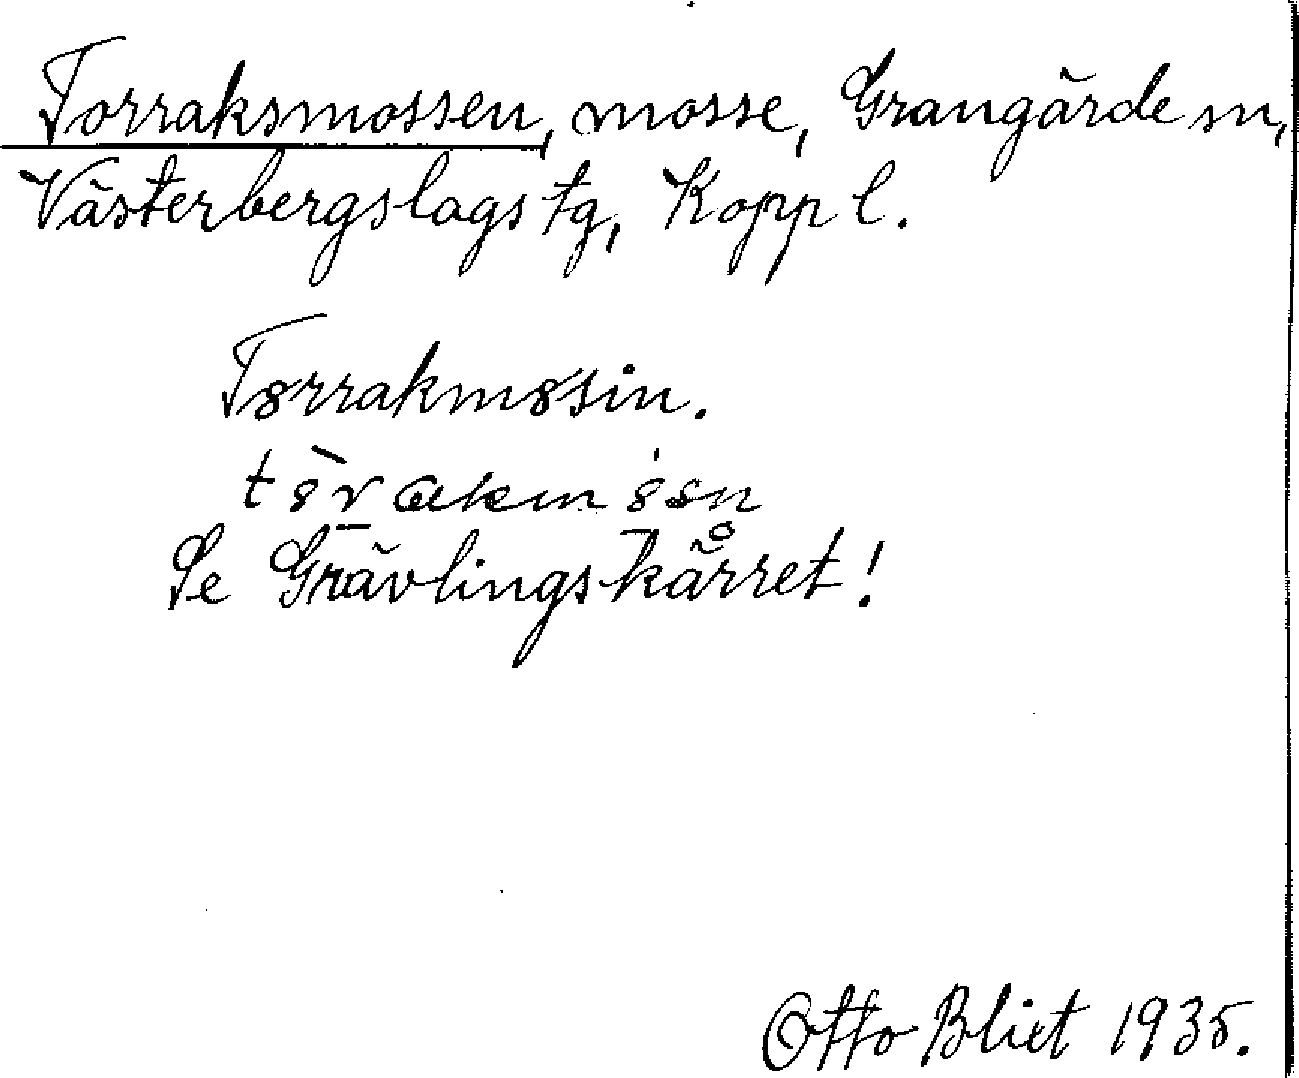 Torraksmossen, mosse, Grangärde sn,
Västerbergslags tg, Kopp l.
T8rrakm8sin.
t8̀r̠akm8́sn
Se Grävlingskärret!
Otto Blixt 1935.